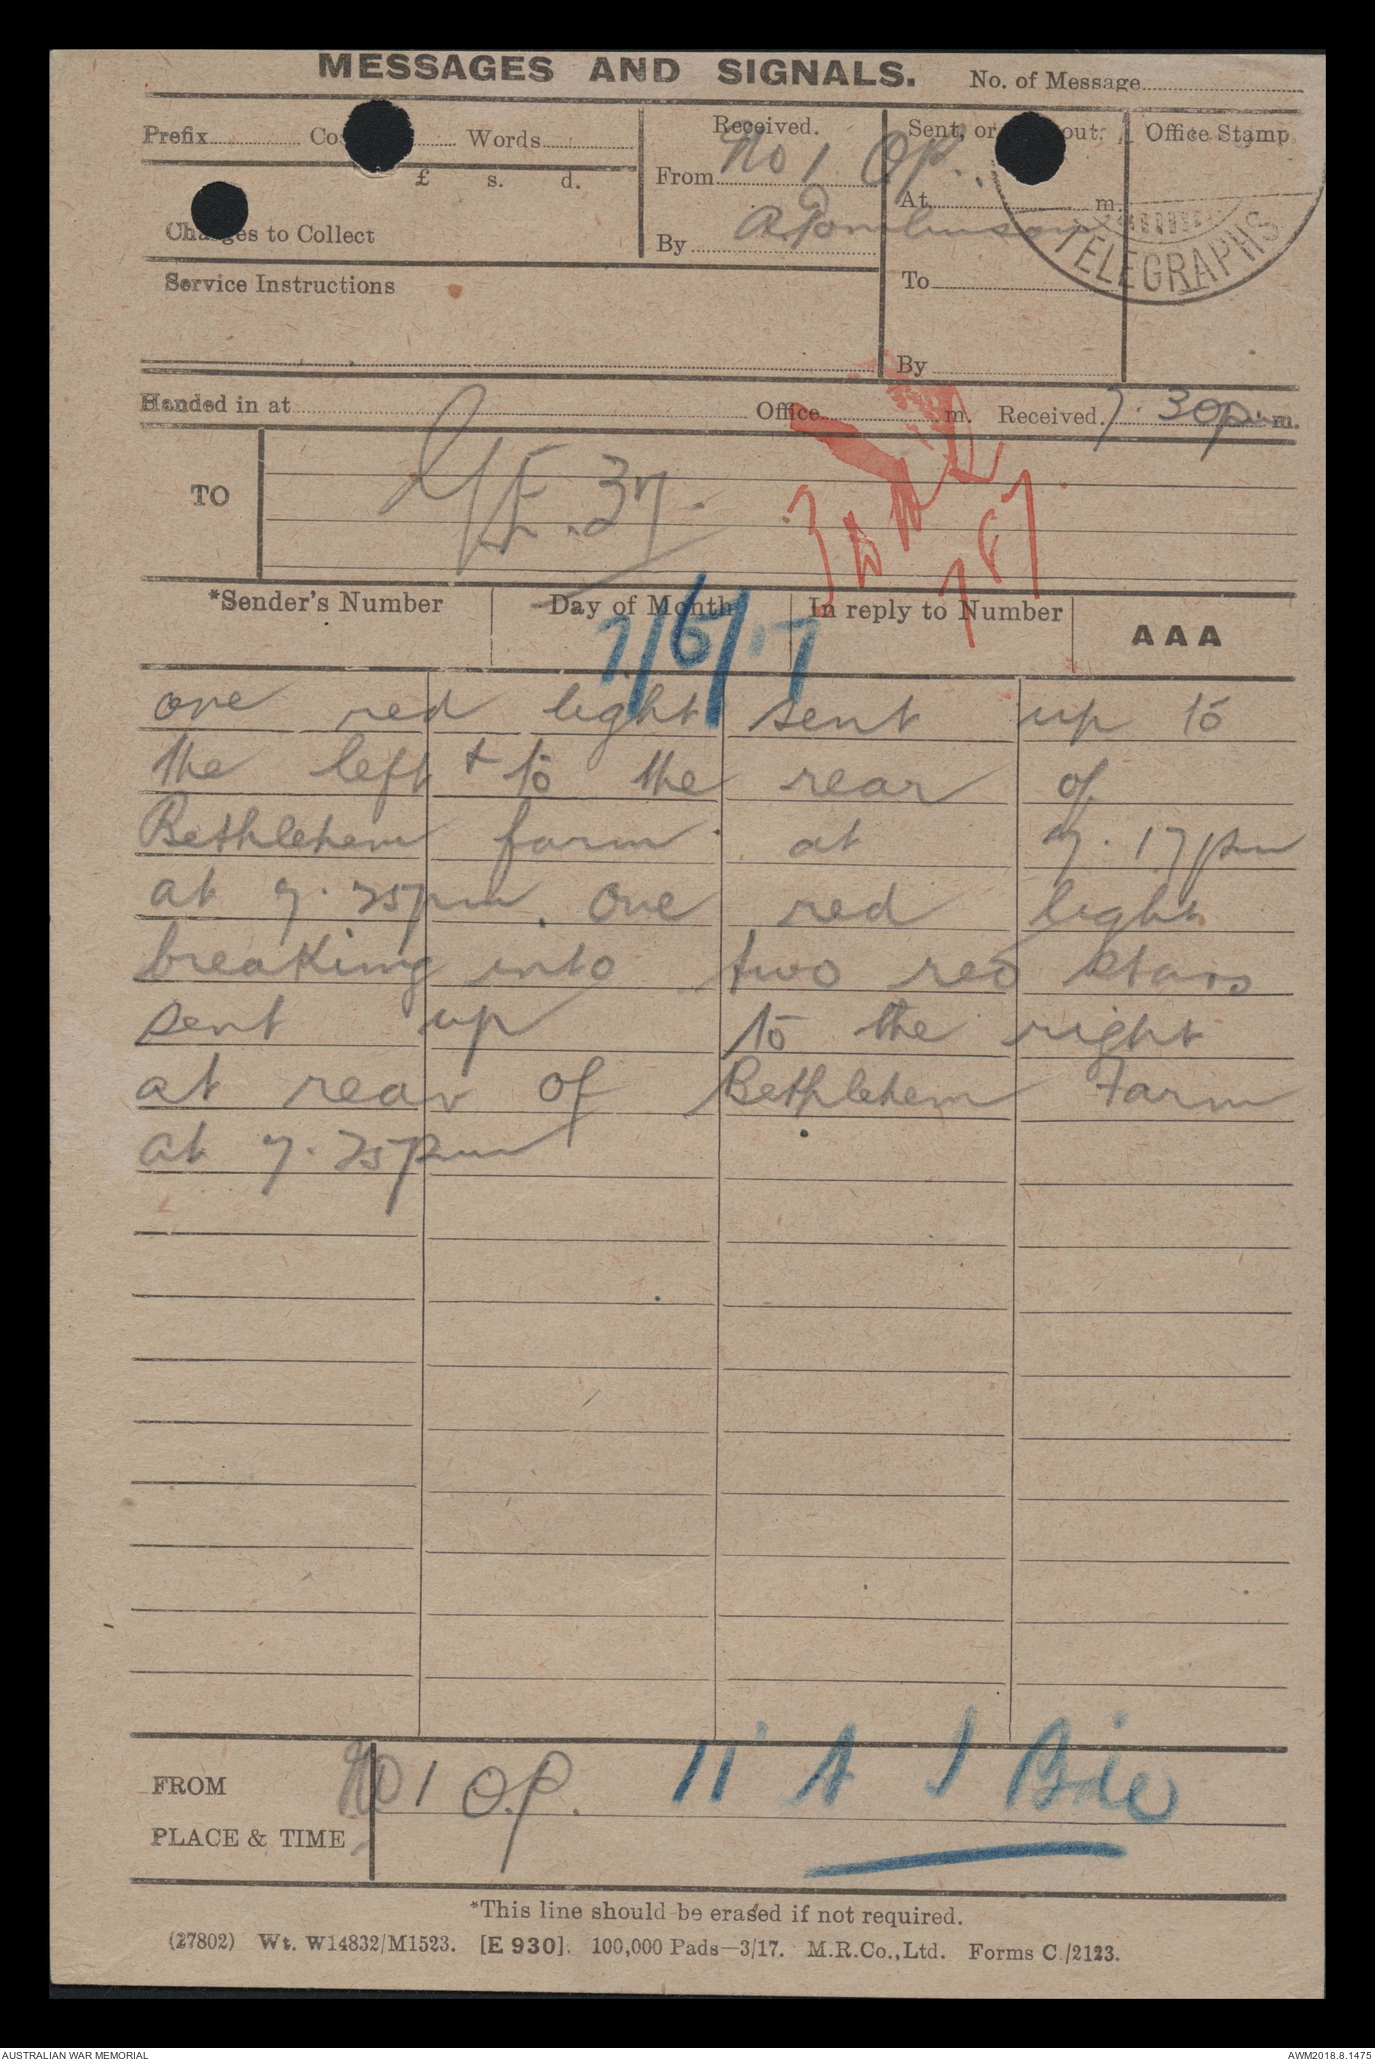 MESSAGES AND SIGNALS. No. of Message
Prefix Words
£ s. d.
Charges to Collect
Service Instructions
Received.
From No 1 OP.
By A. Tomlinson
Sent, or out.
At m.
To
By
Office Stamp
TELEGRAPHS
Handed in at Office m. Received 7.30p.m.
TO GE.37.
7 6 17
*Sender's Number Day of Month In reply to Number AAA
7/6/17
one red light sent up to
the left + to the rear of
Bethlehem farm at 7.17pm
at 7.25pm. One red light
breaking into two red stars
sent up to the right
at rear of Bethlehem Farm
at 7.25pm
FROM No 1 O.P. 11 A I Bde
PLACE & TIME
*This line should be erased if not required.
(27802) Wt. W14832/M1523. [E 930]. 100,000 Pads—3/17. M.R.Co., Ltd. Forms C/2123.
AUSTRALIAN WAR MEMORIAL AWM2018.8.1475